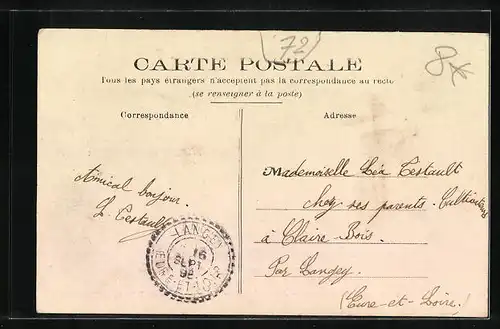 (72)
8x
CARTE POSTALE
Tous les pays étrangers n'acceptent pas la correspondance au recto
(se renseigner à la poste)
Correspondance
Adresse
Amical bonjour.
L. Testault
Mademoiselle Léa Testault
chez ses parents. Cultivateurs
à Claire-Bois.
Par Langey.
(Eure-et-Loire)
LANGEY
16
SEPT
EURE-ET-LOIR